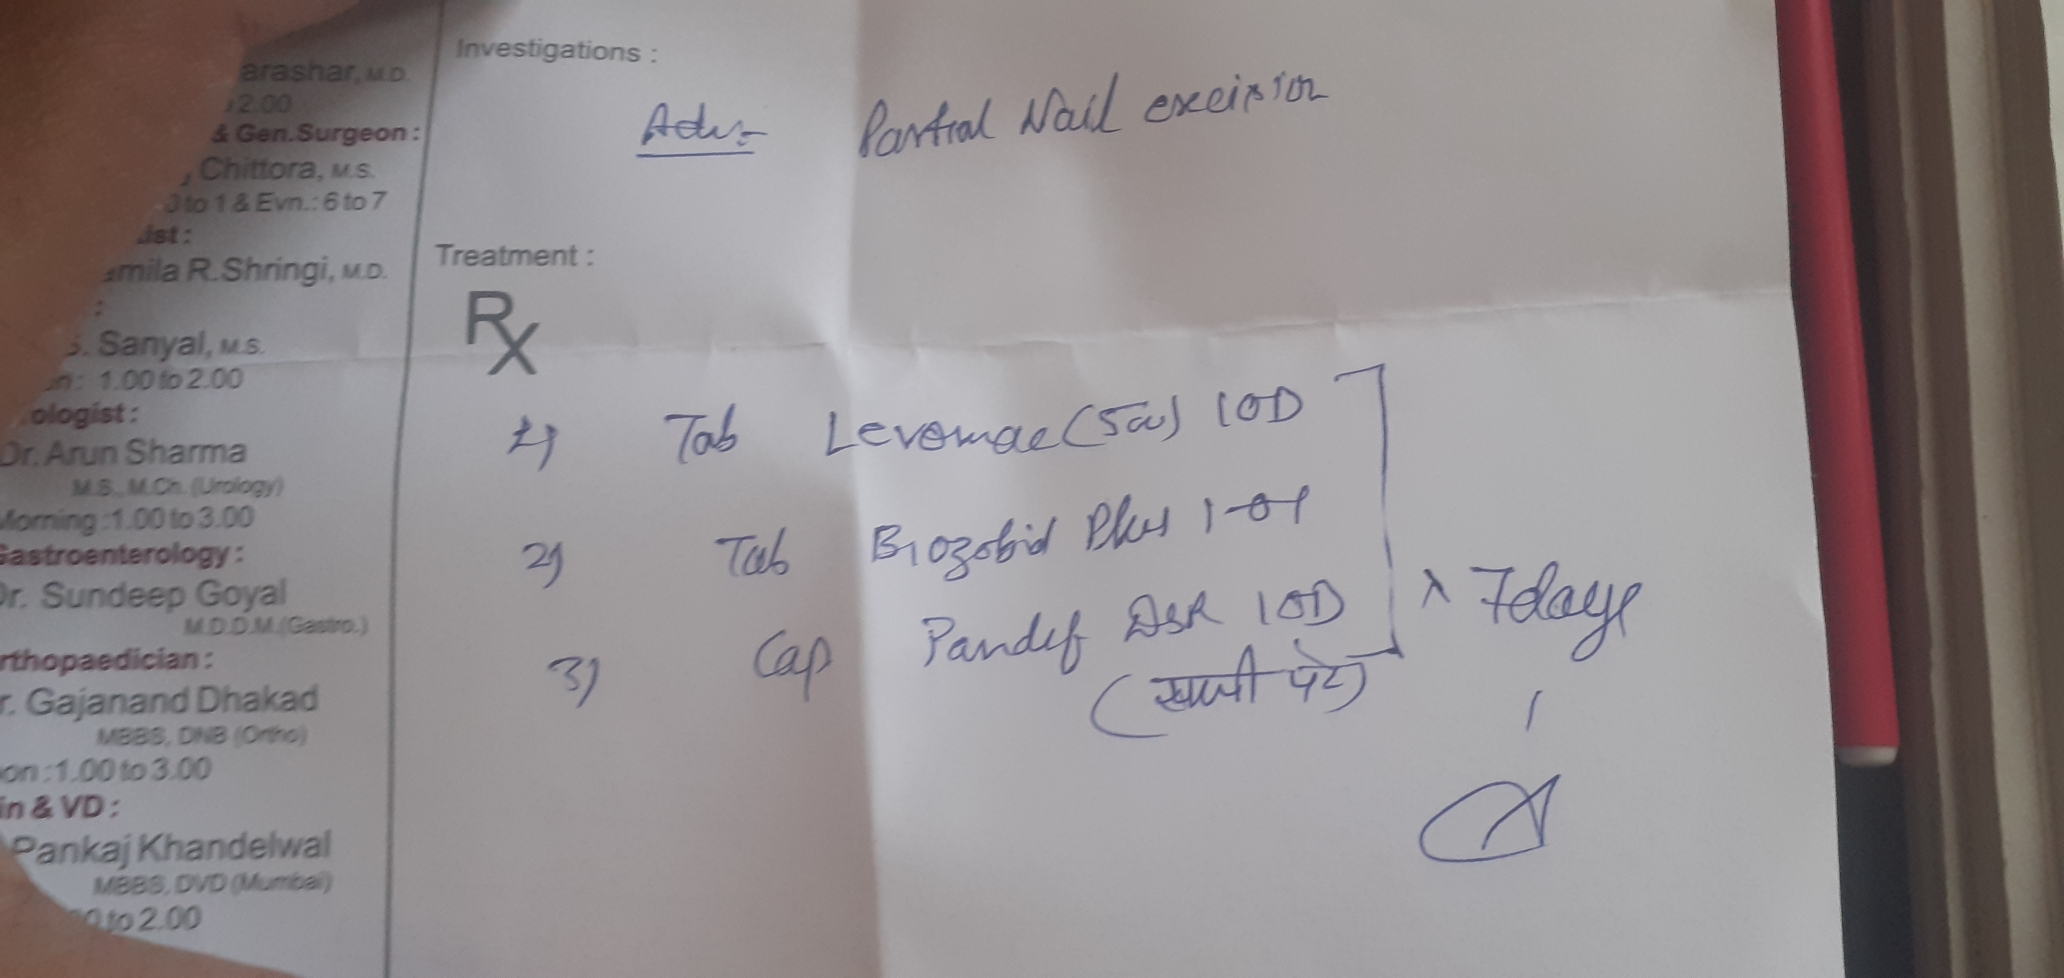 arashar, M.D.
2.00
& Gen.Surgeon :
Chittora, M.S.
0 to 1 & Evn.: 6 to 7
ist :
mila R.Shringi, M.D.
:
. Sanyal, M.S.
on : 1.00 to 2.00
ologist :
Dr. Arun Sharma
M.S., M.Ch. (Urology)
Morning :1.00 to 3.00
Gastroenterology :
Dr. Sundeep Goyal
M.D.D.M.(Gastro.)
rthopaedician :
r. Gajanand Dhakad
MBBS, DNB (Ortho)
on :1.00 to 3.00
in & VD :
Pankaj Khandelwal
MBBS, DVD (Mumbai)
0 to 2.00
Investigations :
Adv:- Partial Nail excision
Treatment :
Rx
1) Tab (500) 1OD
2) Tab Plus 1-0-1
3) Cap DSR 1OD
(खाली पेट)
x 7days